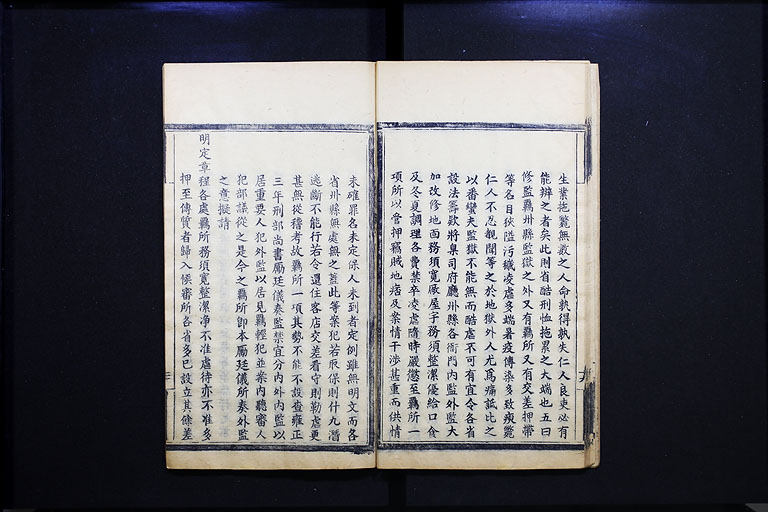 生業拖斃無數之人命孰得孰失仁人良吏必有
能辨之者矣此則省酷刑恤拖累之大端也五曰
修監羈州縣監獄之外又有羈所又有交差押帶
等名目狹隘污穢凌虐多端暑疫傳染多致瘐斃
仁人不忍覩聞等之於地獄外人尤為痛詆比之
以番蠻夫監獄不能無而酷虐不可有宜令各省
設法籌款將臬司府廳州縣各衙門內監外監大
加改修地面務須寬廠屋宇務須整潔優給口食
及冬夏調理各費禁卒凌虐隨時嚴懲至羈所一
項所以管押竊賊地痞及案情干涉甚重而供情
未確罪名未定保人未到者定例雖無明文而各
省州縣無處無之蓋此等案犯若取保則什九潛
逃斷不能行若令還住客店交差看守則勒虐更
甚無從稽考故羈所一項其勢不能不設查雍正
三年刑部尚書勵廷儀奏監禁宜分內外內監以
居重要人犯外監以居見羈輕犯並案內聽審人
犯部議從之是今之羈所卽本勵廷儀所奏外監
之意擬請
明定章程各處羈所務須寬整潔淨不准虐待亦不准多
押至傳質者歸入候審所各省多已設立其餘差